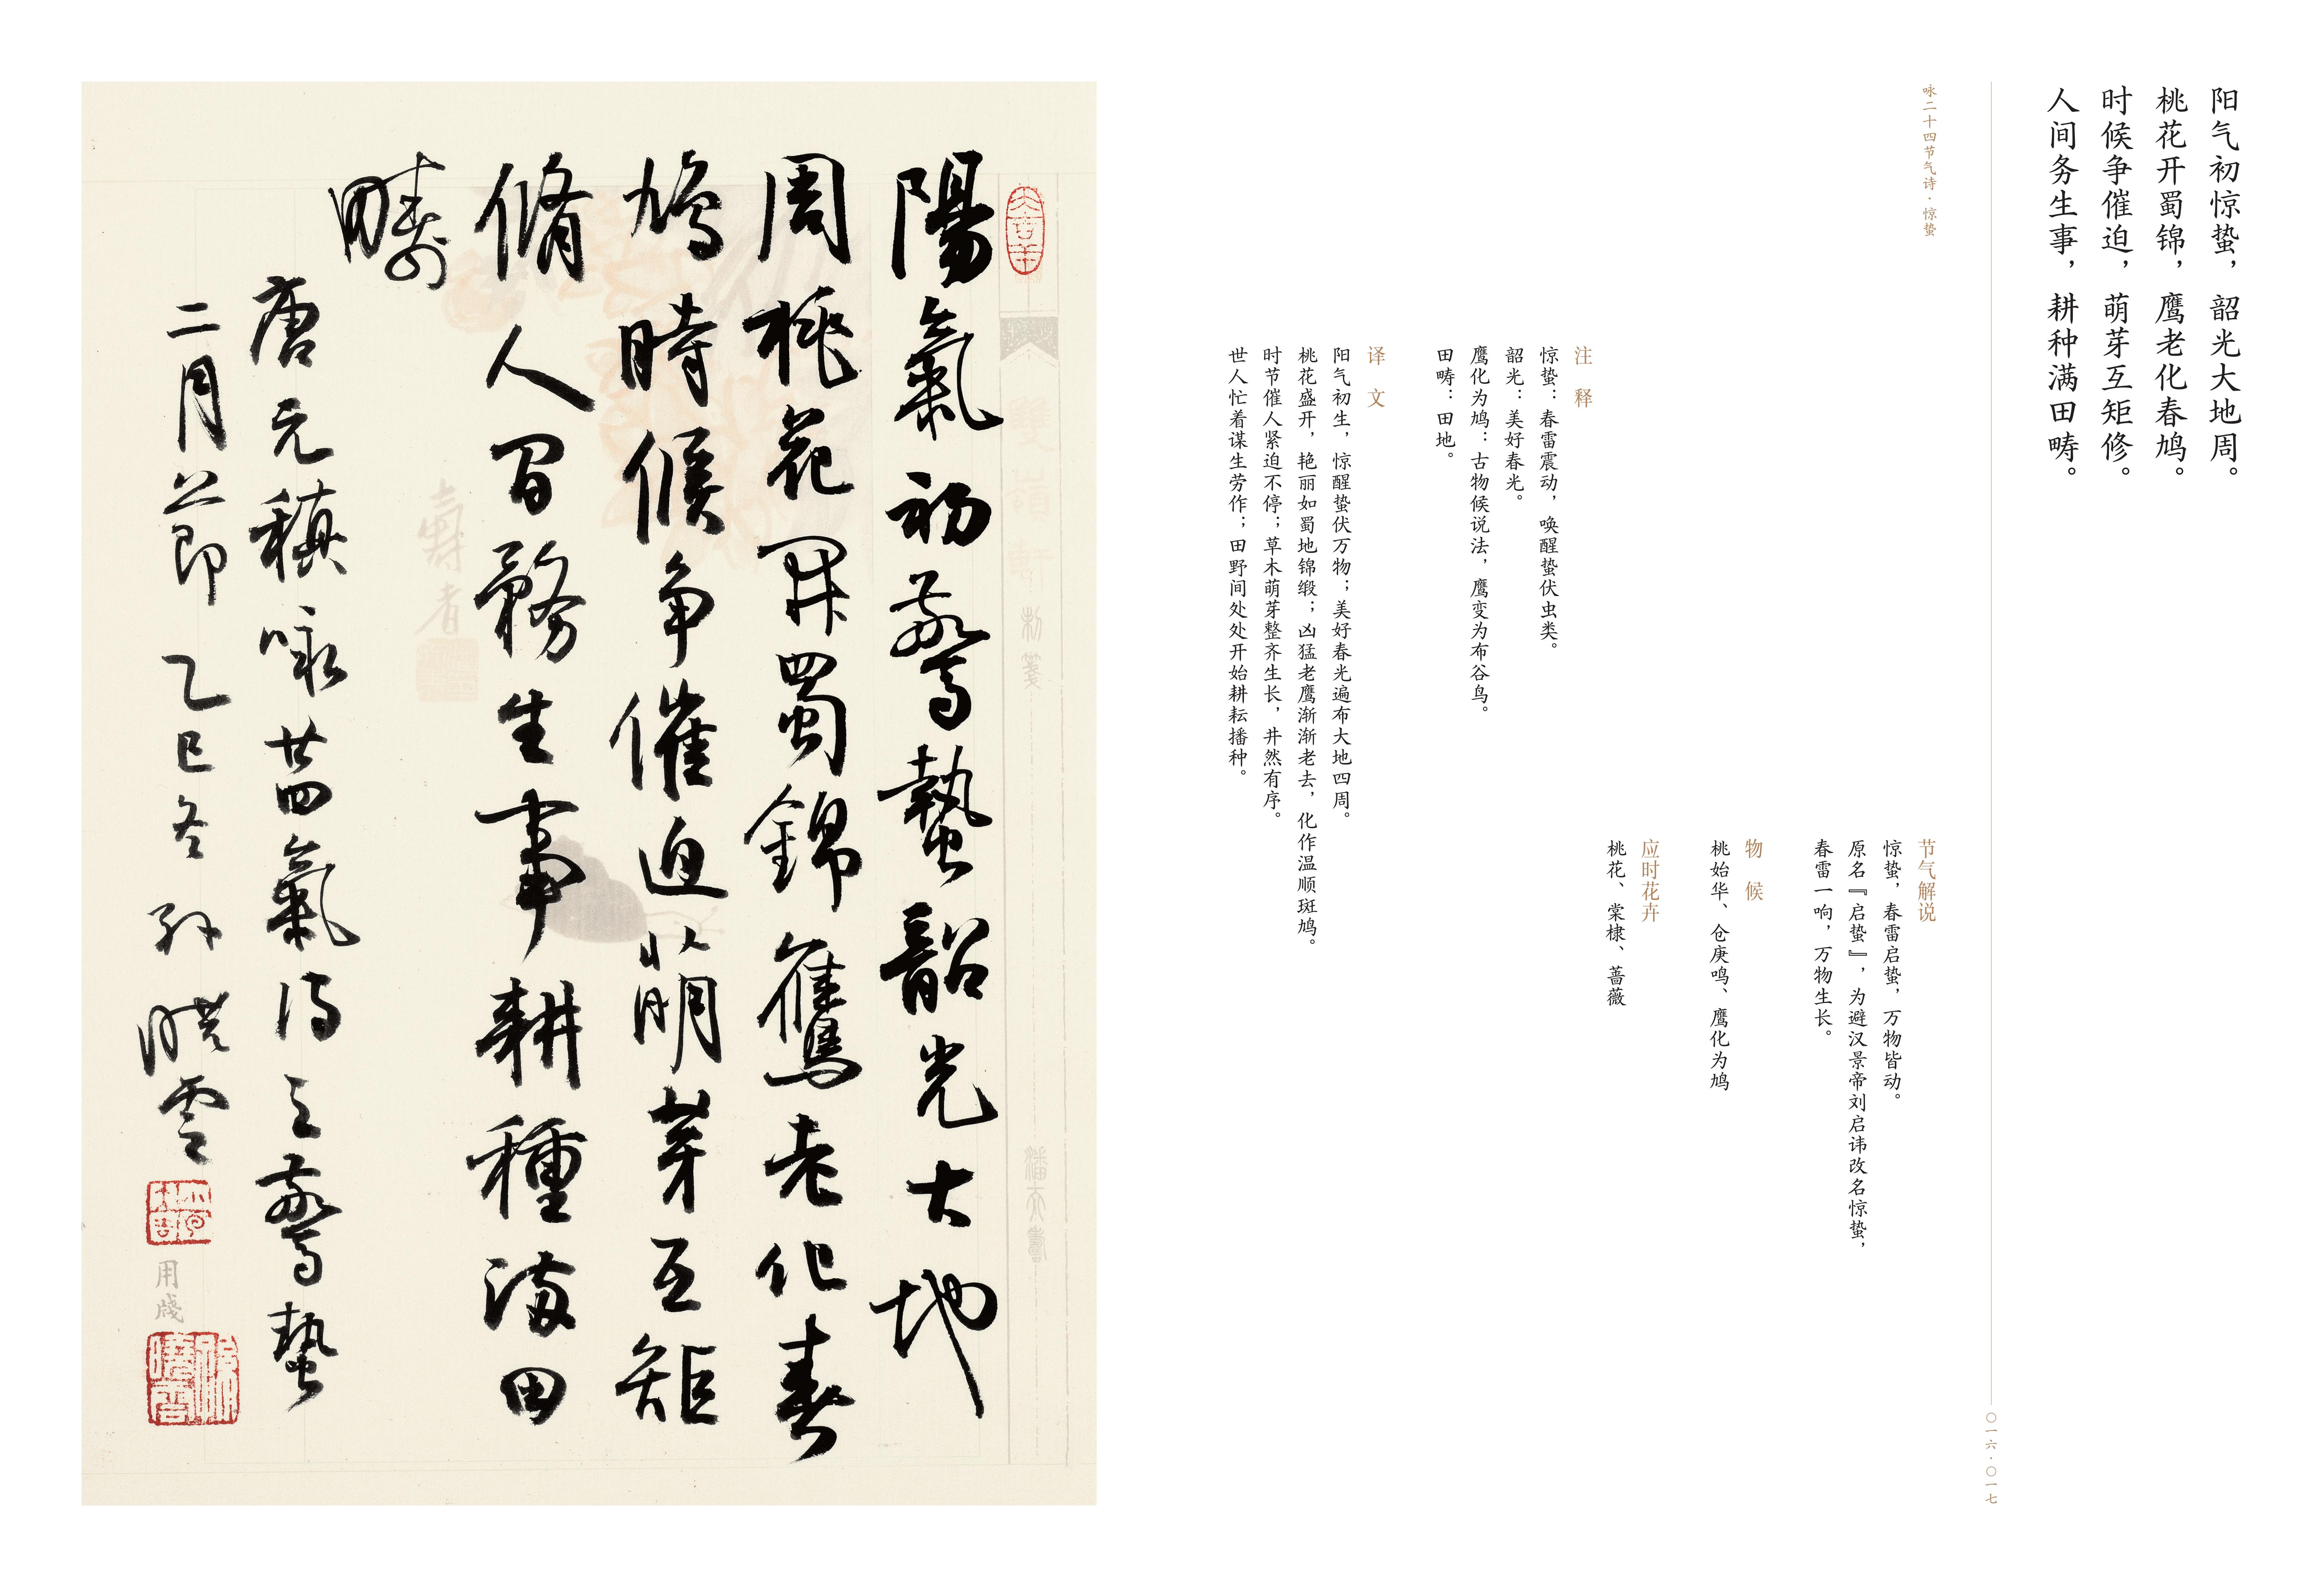 阳气初惊蛰，韶光大地周。
桃花开蜀锦，鹰老化春鸠。
时候争催迫，萌芽互矩修。
人间务生事，耕种满田畴。
咏二十四节气诗·惊蛰
节气解说
惊蛰，春雷启蛰，万物皆动。
原名『启蛰』，为避汉景帝刘启讳改名惊蛰，
春雷一响，万物生长。
物候
桃始华、仓庚鸣、鹰化为鸠
应时花卉
桃花、棠棣、蔷薇
注释
惊蛰：春雷震动，唤醒蛰伏虫类。
韶光：美好春光。
鹰化为鸠：古物候说法，鹰变为布谷鸟。
田畴：田地。
译文
阳气初生，惊醒蛰伏万物；美好春光遍布大地四周。
桃花盛开，艳丽如蜀地锦缎；凶猛老鹰渐渐老去，化作温顺斑鸠。
时节催人紧迫不停；草木萌芽整齐生长，井然有序。
世人忙着谋生劳作；田野间处处开始耕耘播种。
〇一六·〇一七
大吉羊
陽氣初驚蟄韶光大地
周桃花開蜀錦鷹老化春
鳩時候争催迫萌芽互矩
脩人間務生事耕種滿田
疇
唐元稹咏廿四氣詩之驚蟄
二月節乙巳冬孙曉雲
雙清軒
制箋
壽者
用牋